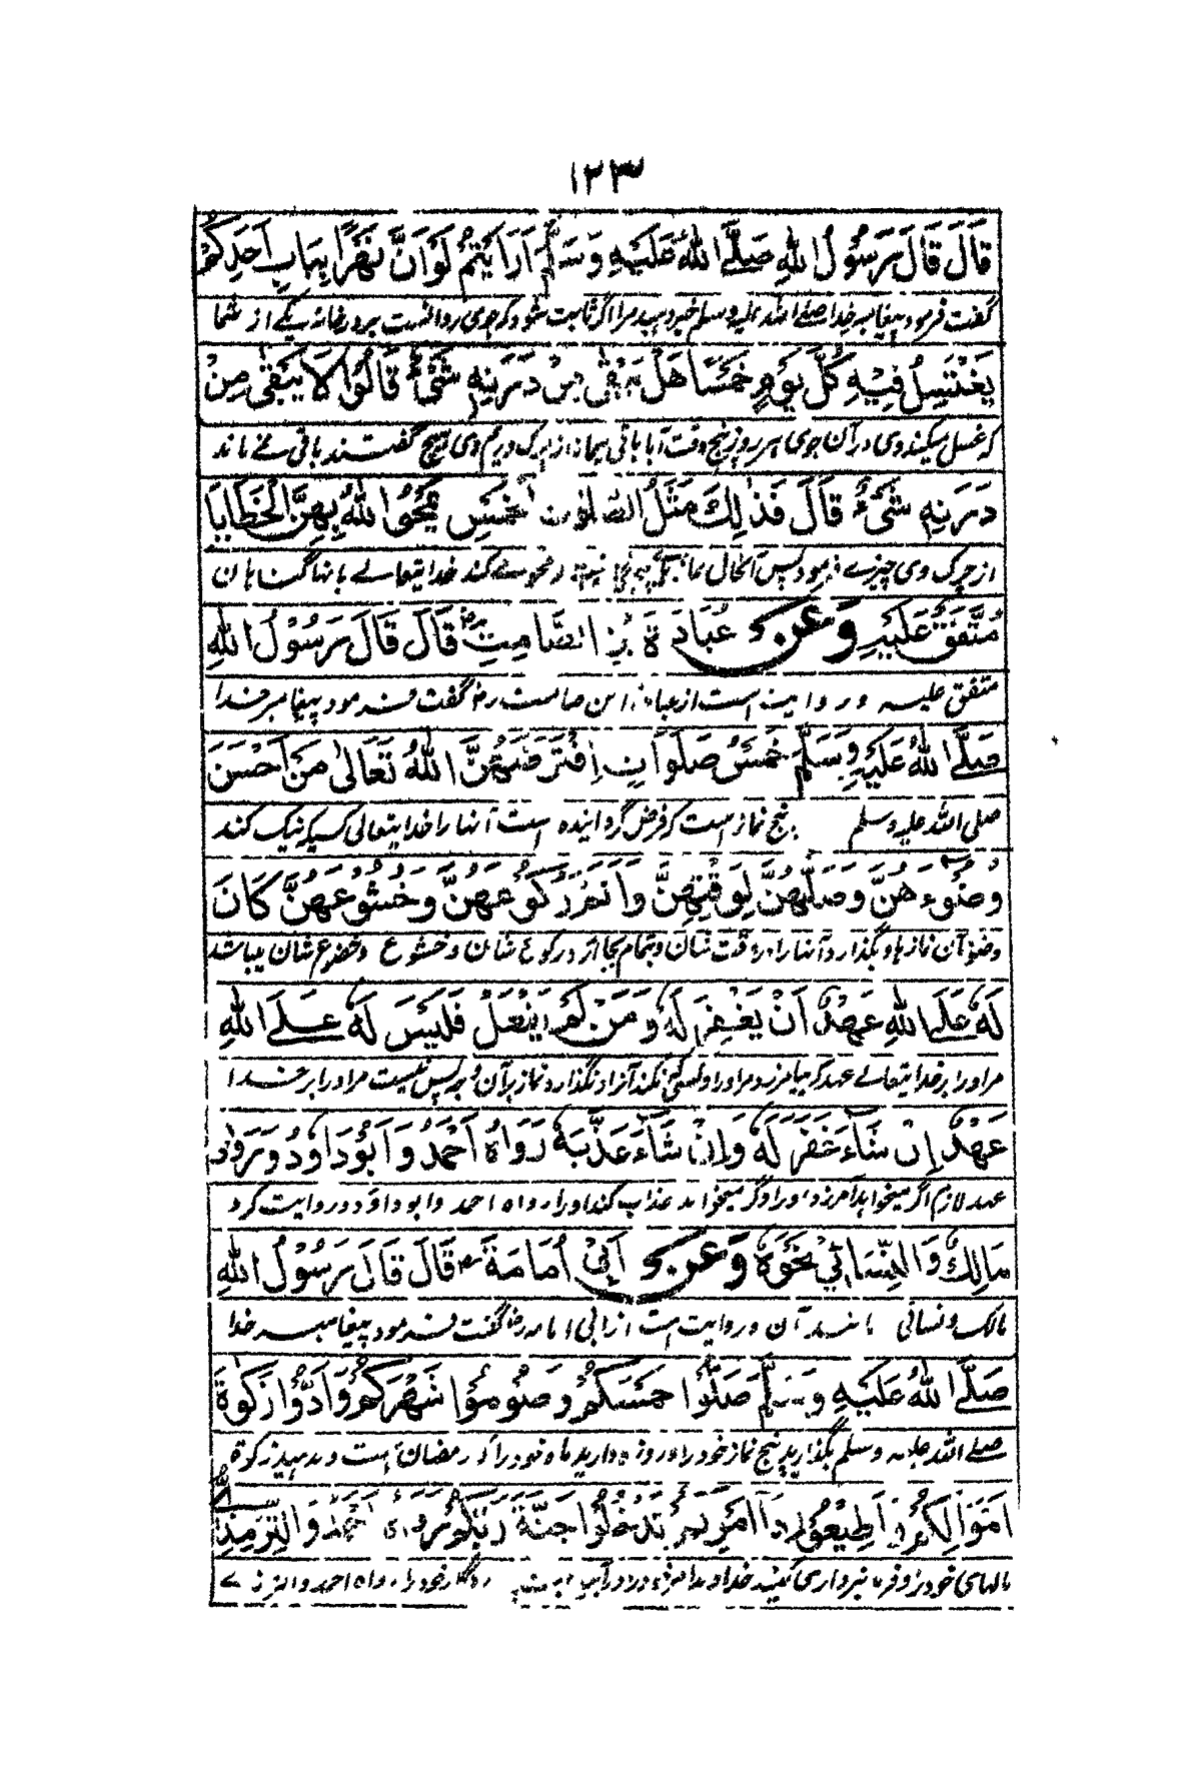 ۱۲۳
قَالَ قَالَ رَسُوْلُ اللهِ صَلَّى اللهُ عَلَيْهِ وَسَلَّمَ اَرَاَيْتُمْ لَوْ اَنَّ نَهَرًا بِبَابِ اَحَدِكُمْ
گفت فرمود پیغامبر خدا صلے اللہ علیہ وسلم خبر دہید مرا اگر ثابت شود کہ جوی روانست بر در خانہ یکے از شما
يَغْتَسِلُ فِيْهِ كُلَّ يَوْمٍ خَمْسًا هَلْ يَبْقٰى مِنْ دَرَنِهٖ شَىْءٌ قَالُوْا لَا يَبْقٰى مِنْ
کہ غسل میکند وی در آن جوی ہر روز پنج وقت آیا باقی میماند از چرک و ریم وی ہیچ گفتند باقی نمے ماند
دَرَنِهٖ شَىْءٌ قَالَ فَذٰلِكَ مَثَلُ الصَّلَوٰتِ الْخَمْسِ يَمْحُوا اللهُ بِهِنَّ الْخَطَايَا
از چرک وی چیزے فرمود پس آنحال محو مے کند خدا یتعالے بانہا گناہان
مُتَّفَقٌ عَلَيْهِ وَعَنْ عُبَادَةَ بْنِ الصَّامِتِ رض قَالَ قَالَ رَسُوْلُ اللهِ
متفق علیہ و روایت است از عبادہ ابن صامت رض گفت فرمود پیغامبر خدا
صَلَّى اللهُ عَلَيْهِ وَسَلَّمَ خَمْسُ صَلَوَاتٍ اِفْتَرَضَهُنَّ اللهُ تَعَالٰى مَنْ اَحْسَنَ
صلی اللہ علیہ وسلم پنج نماز است کہ فرض گردانیدہ است آنہا را خدا یتعالی کسیکہ نیک کند
وُضُوْءَهُنَّ وَصَلَّهُنَّ لِوَقْتِهِنَّ وَاَتَمَّ رُكُوْعَهُنَّ وَخُشُوْعَهُنَّ كَانَ
وضو آن نمازہا و بگذارد آنہا را در وقت شان و بتمام بجا آرد رکوع شان و خشوع و خضوع شان میباشد
لَهٗ عَلَى اللهِ عَهْدٌ اَنْ يَغْفِرَ لَهٗ وَمَنْ لَمْ يَفْعَلْ فَلَيْسَ لَهٗ عَلَى اللهِ
مر او را بر خدا یتعالے عہد کہ بیامرزد مر او را و کسی کہ نکند آنرا و نگذارد نماز بر آن وجہ پس نیست مر او را بر خدا
عَهْدٌ اِنْ شَاءَ غَفَرَ لَهٗ وَاِنْ شَاءَ عَذَّبَهٗ رَوَاهُ اَحْمَدُ وَاَبُوْ دَاوُدَ وَرَوٰى
عہد لازم اگر میخواہد آمرزد او را و گر میخواہد عذاب کند او را رواہ احمد و ابو داؤد و روایت کرد
مَالِكٌ وَالنَّسَائِيُّ نَحْوَهٗ وَعَنْ اَبِيْ اُمَامَةَ رض قَالَ قَالَ رَسُوْلُ اللهِ
مالک و نسائی مانند آن و روایت است از ابی امامہ رض گفت فرمود پیغامبر خدا
صَلَّى اللهُ عَلَيْهِ وَسَلَّمَ صَلُّوْا خَمْسَكُمْ وَصُوْمُوْا شَهْرَكُمْ وَاَدُّوْا زَكٰوةَ
صلے اللہ علیہ وسلم بگذارید پنج نماز خود را و روزہ دارید ماہ خود را کہ رمضان است و بدہید زکوۃ
اَمْوَالِكُمْ وَاَطِيْعُوْا ذَا اَمْرِكُمْ تَدْخُلُوْا جَنَّةَ رَبِّكُمْ رَوَاهُ اَحْمَدُ وَالتِّرْمِذِيُّ
مالہای خود را و فرمانبرداری کنید خداوند امر خود را در آیید بہشت پروردگار خود را رواہ احمد والترمذے